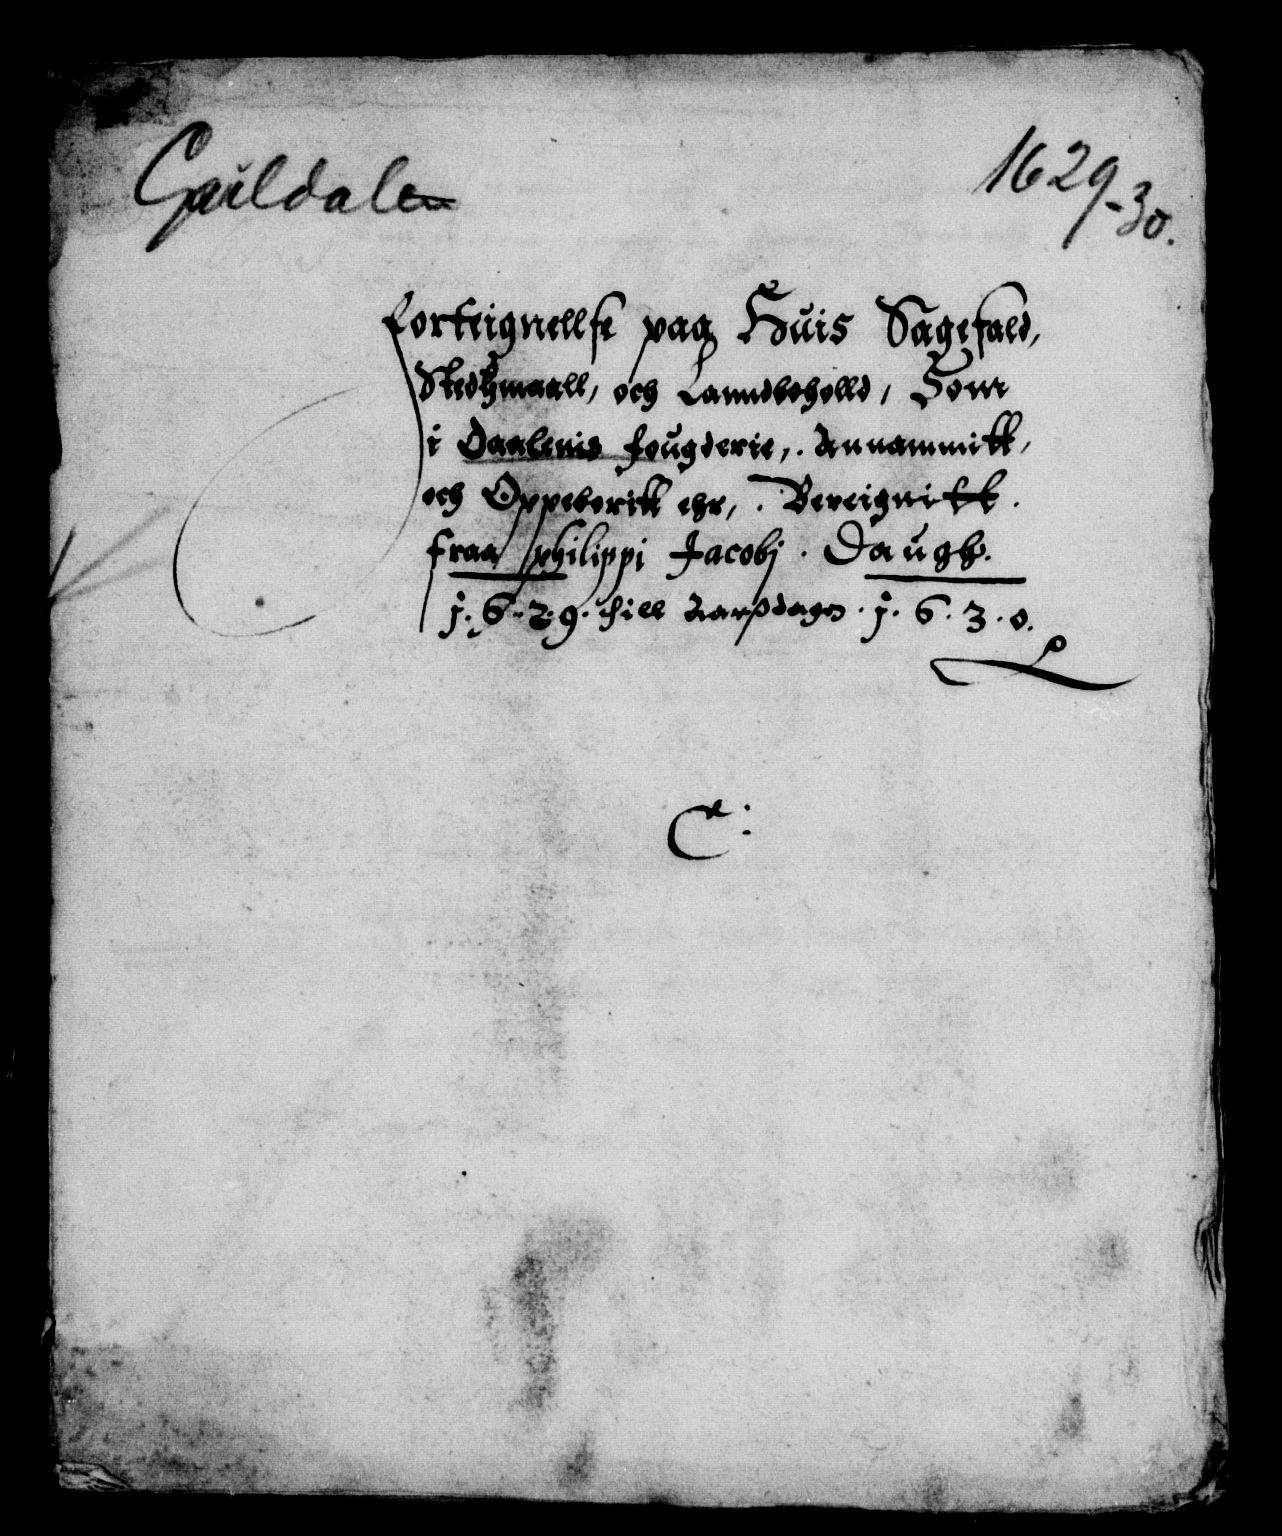 Guldalen
1629-30.
Forteignellse paa Huis Sagefald,
Stedtzmaall, och Lanndboholld, Som
i Daalenis fougderie, Annammitt,
och Oppeboritt ehr, Bereignitt.
fraa philippi Jacobj. Daugh.
j.6.29. till Aarssdagen. j.6.3.0.
C: